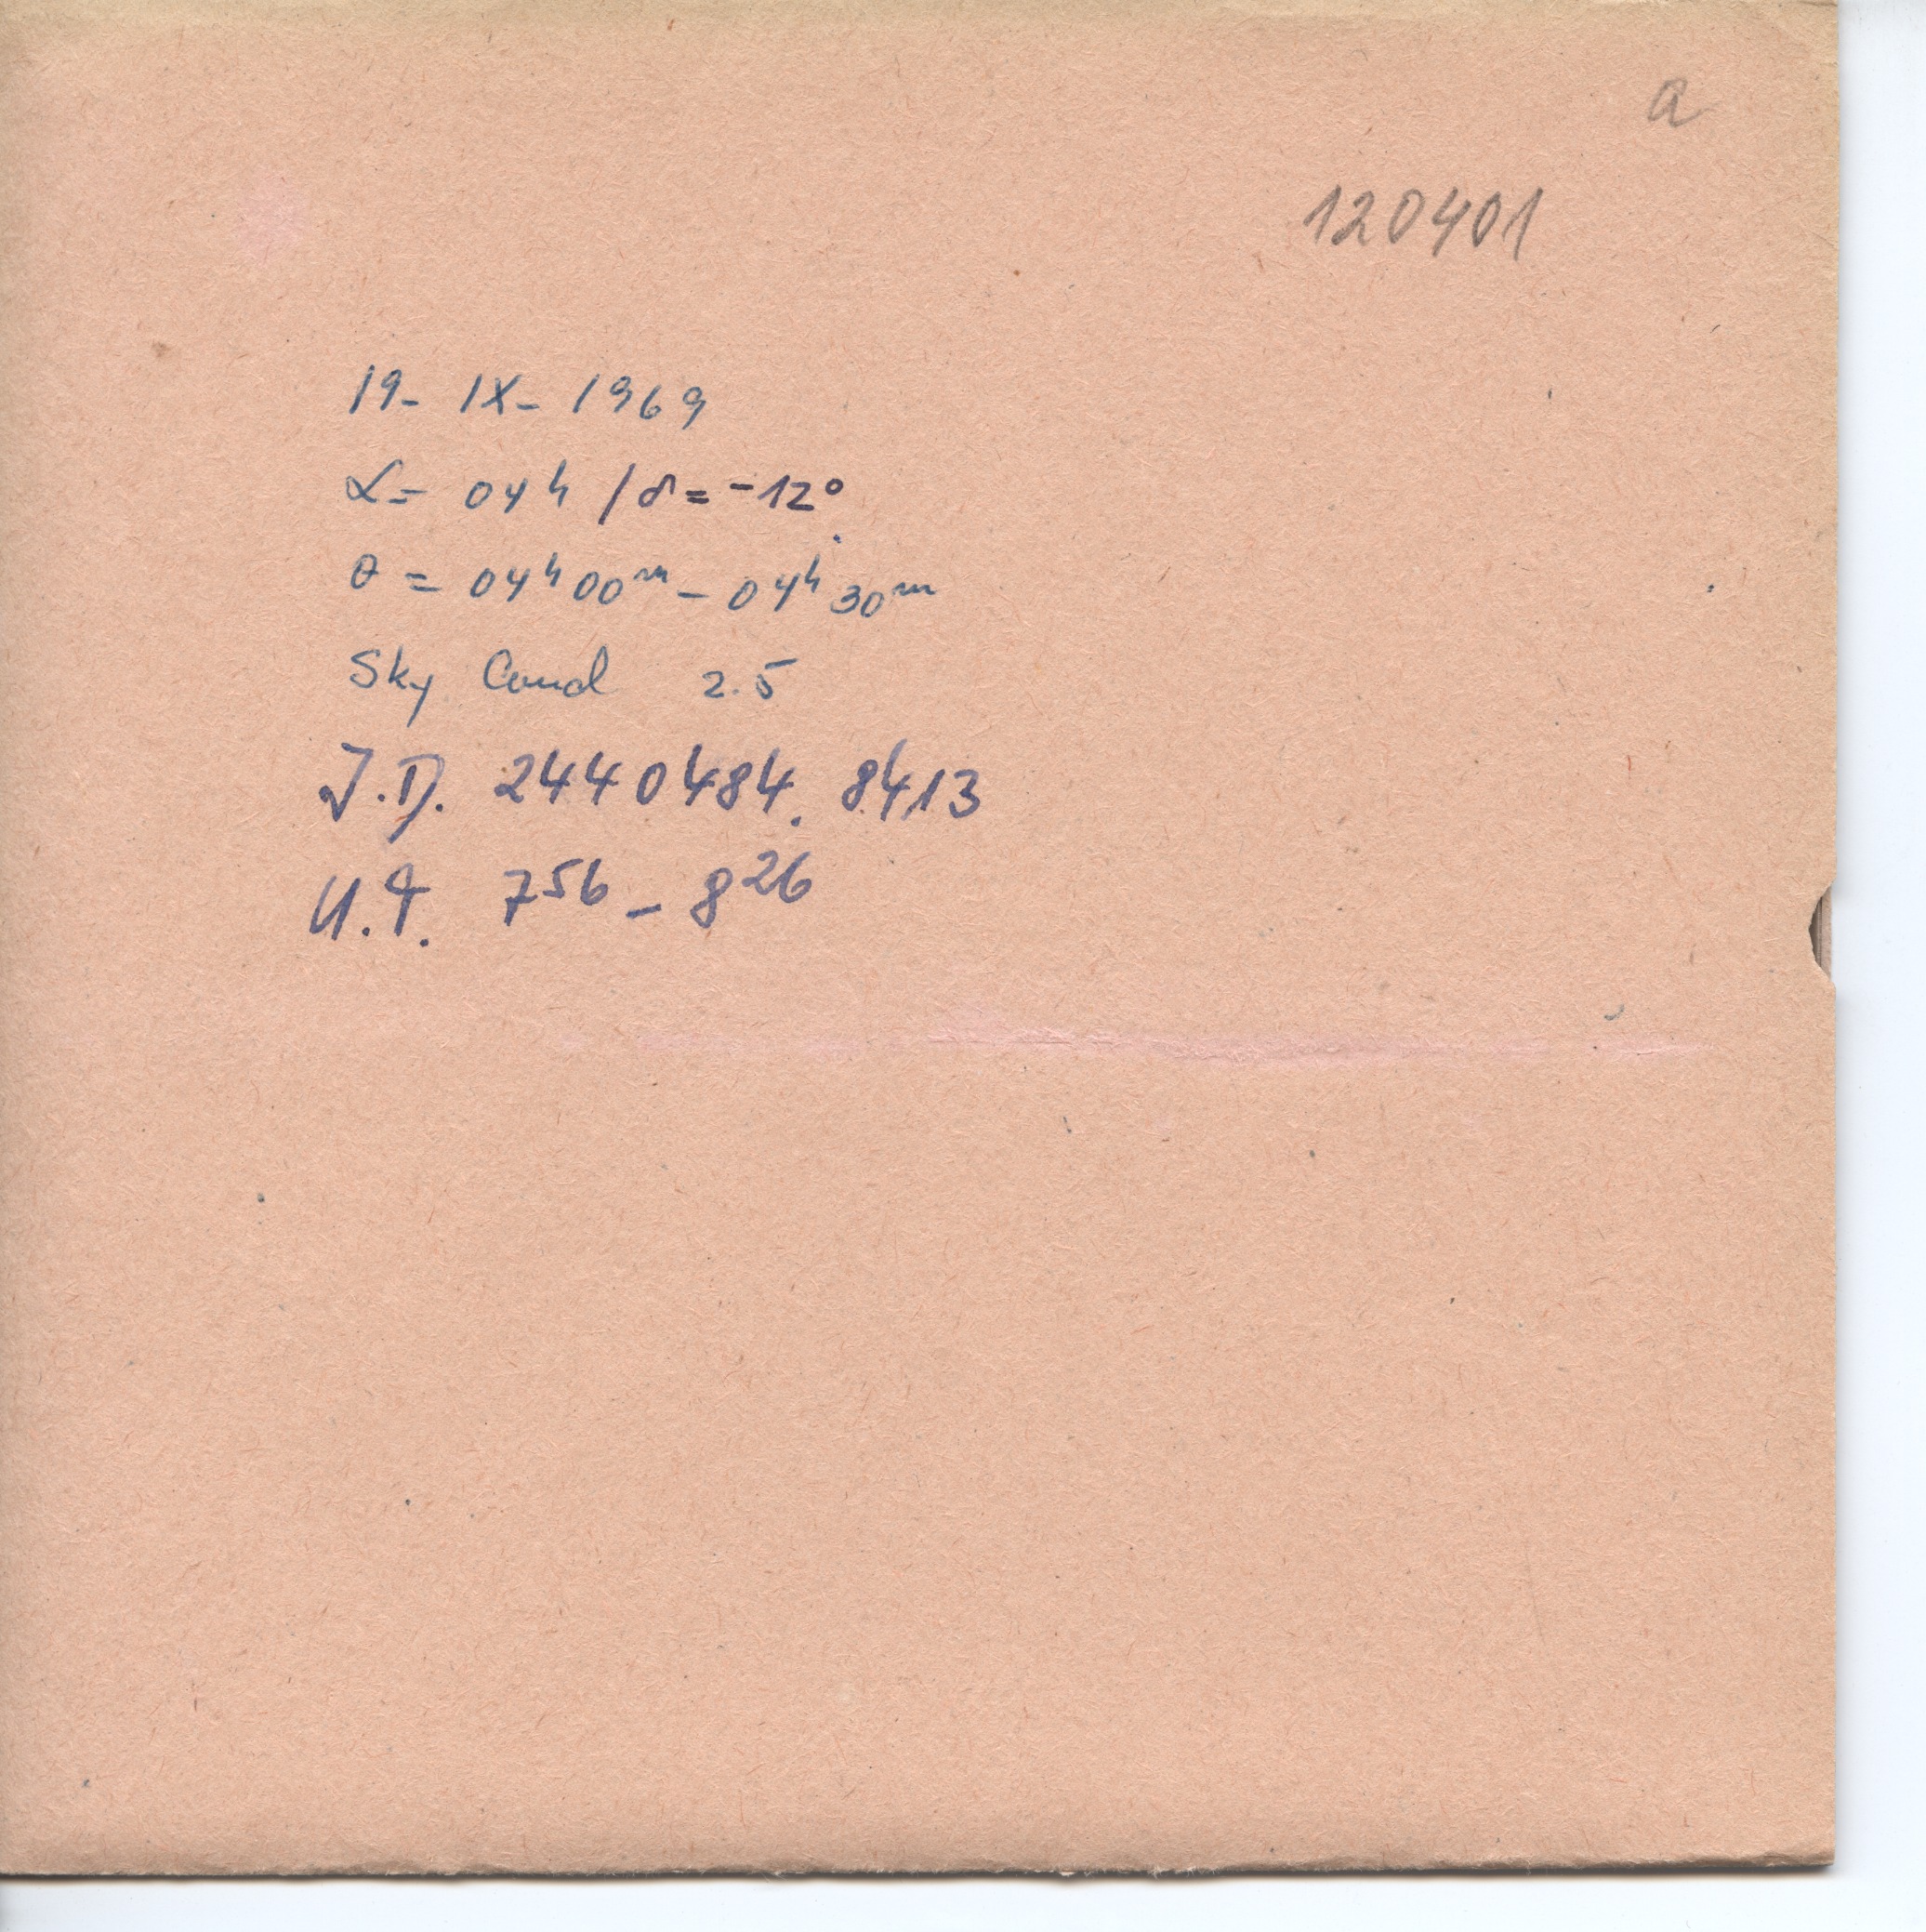 a
120401
19- IX- 1969
α= 04h / δ= -12°
θ = 04h 00m - 04h 30m
Sky Cond 2.5
J.D. 2440484. 8413
U.T. 7 56 - 8 26